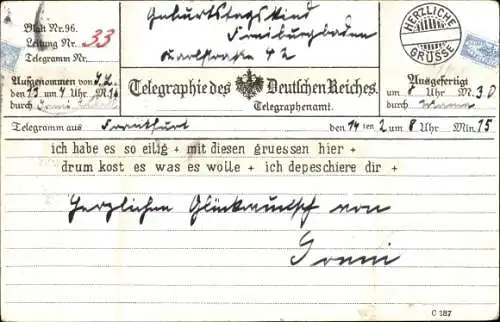 Blatt Nr. 96.
Leitung Nr. 33
Telegramm Nr.
Aufgenommen von
den 13 um 4 Uhr M.
durch
Geburtstagskind
Freiburgbaden
Karlstraße 42
HERZLICHE
GRÜSSE
Telegraphie des Deutschen Reiches.
Telegraphenamt.
Ausgefertigt
um 8 Uhr M. 30
durch
Telegramm aus Frankfurt den 14 ten 2 um 8 Uhr Min. 15
ich habe es so eilig + mit diesen gruessen hier +
drum kost es was es wolle + ich depeschiere dir +
Herzlichen Glückwunsch von
C 187